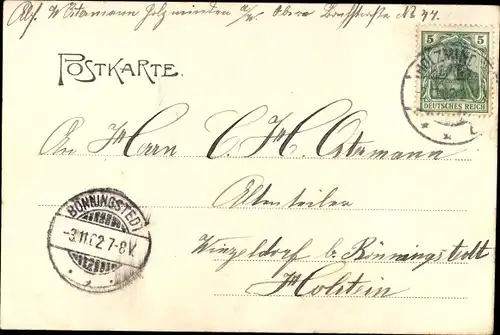 Abs. W Ostermann Holzminden a/W. Obere Bachstraße No 47.
POSTKARTE.
5 5
HOLZMINDEN
DEUTSCHES REICH
An Herrn C. H. Ostermann
Altenteiler
Winzeldorf b. Bönningstedt
Holstein
BÖNNINGSTEDT
-3.11.02.7-8V.